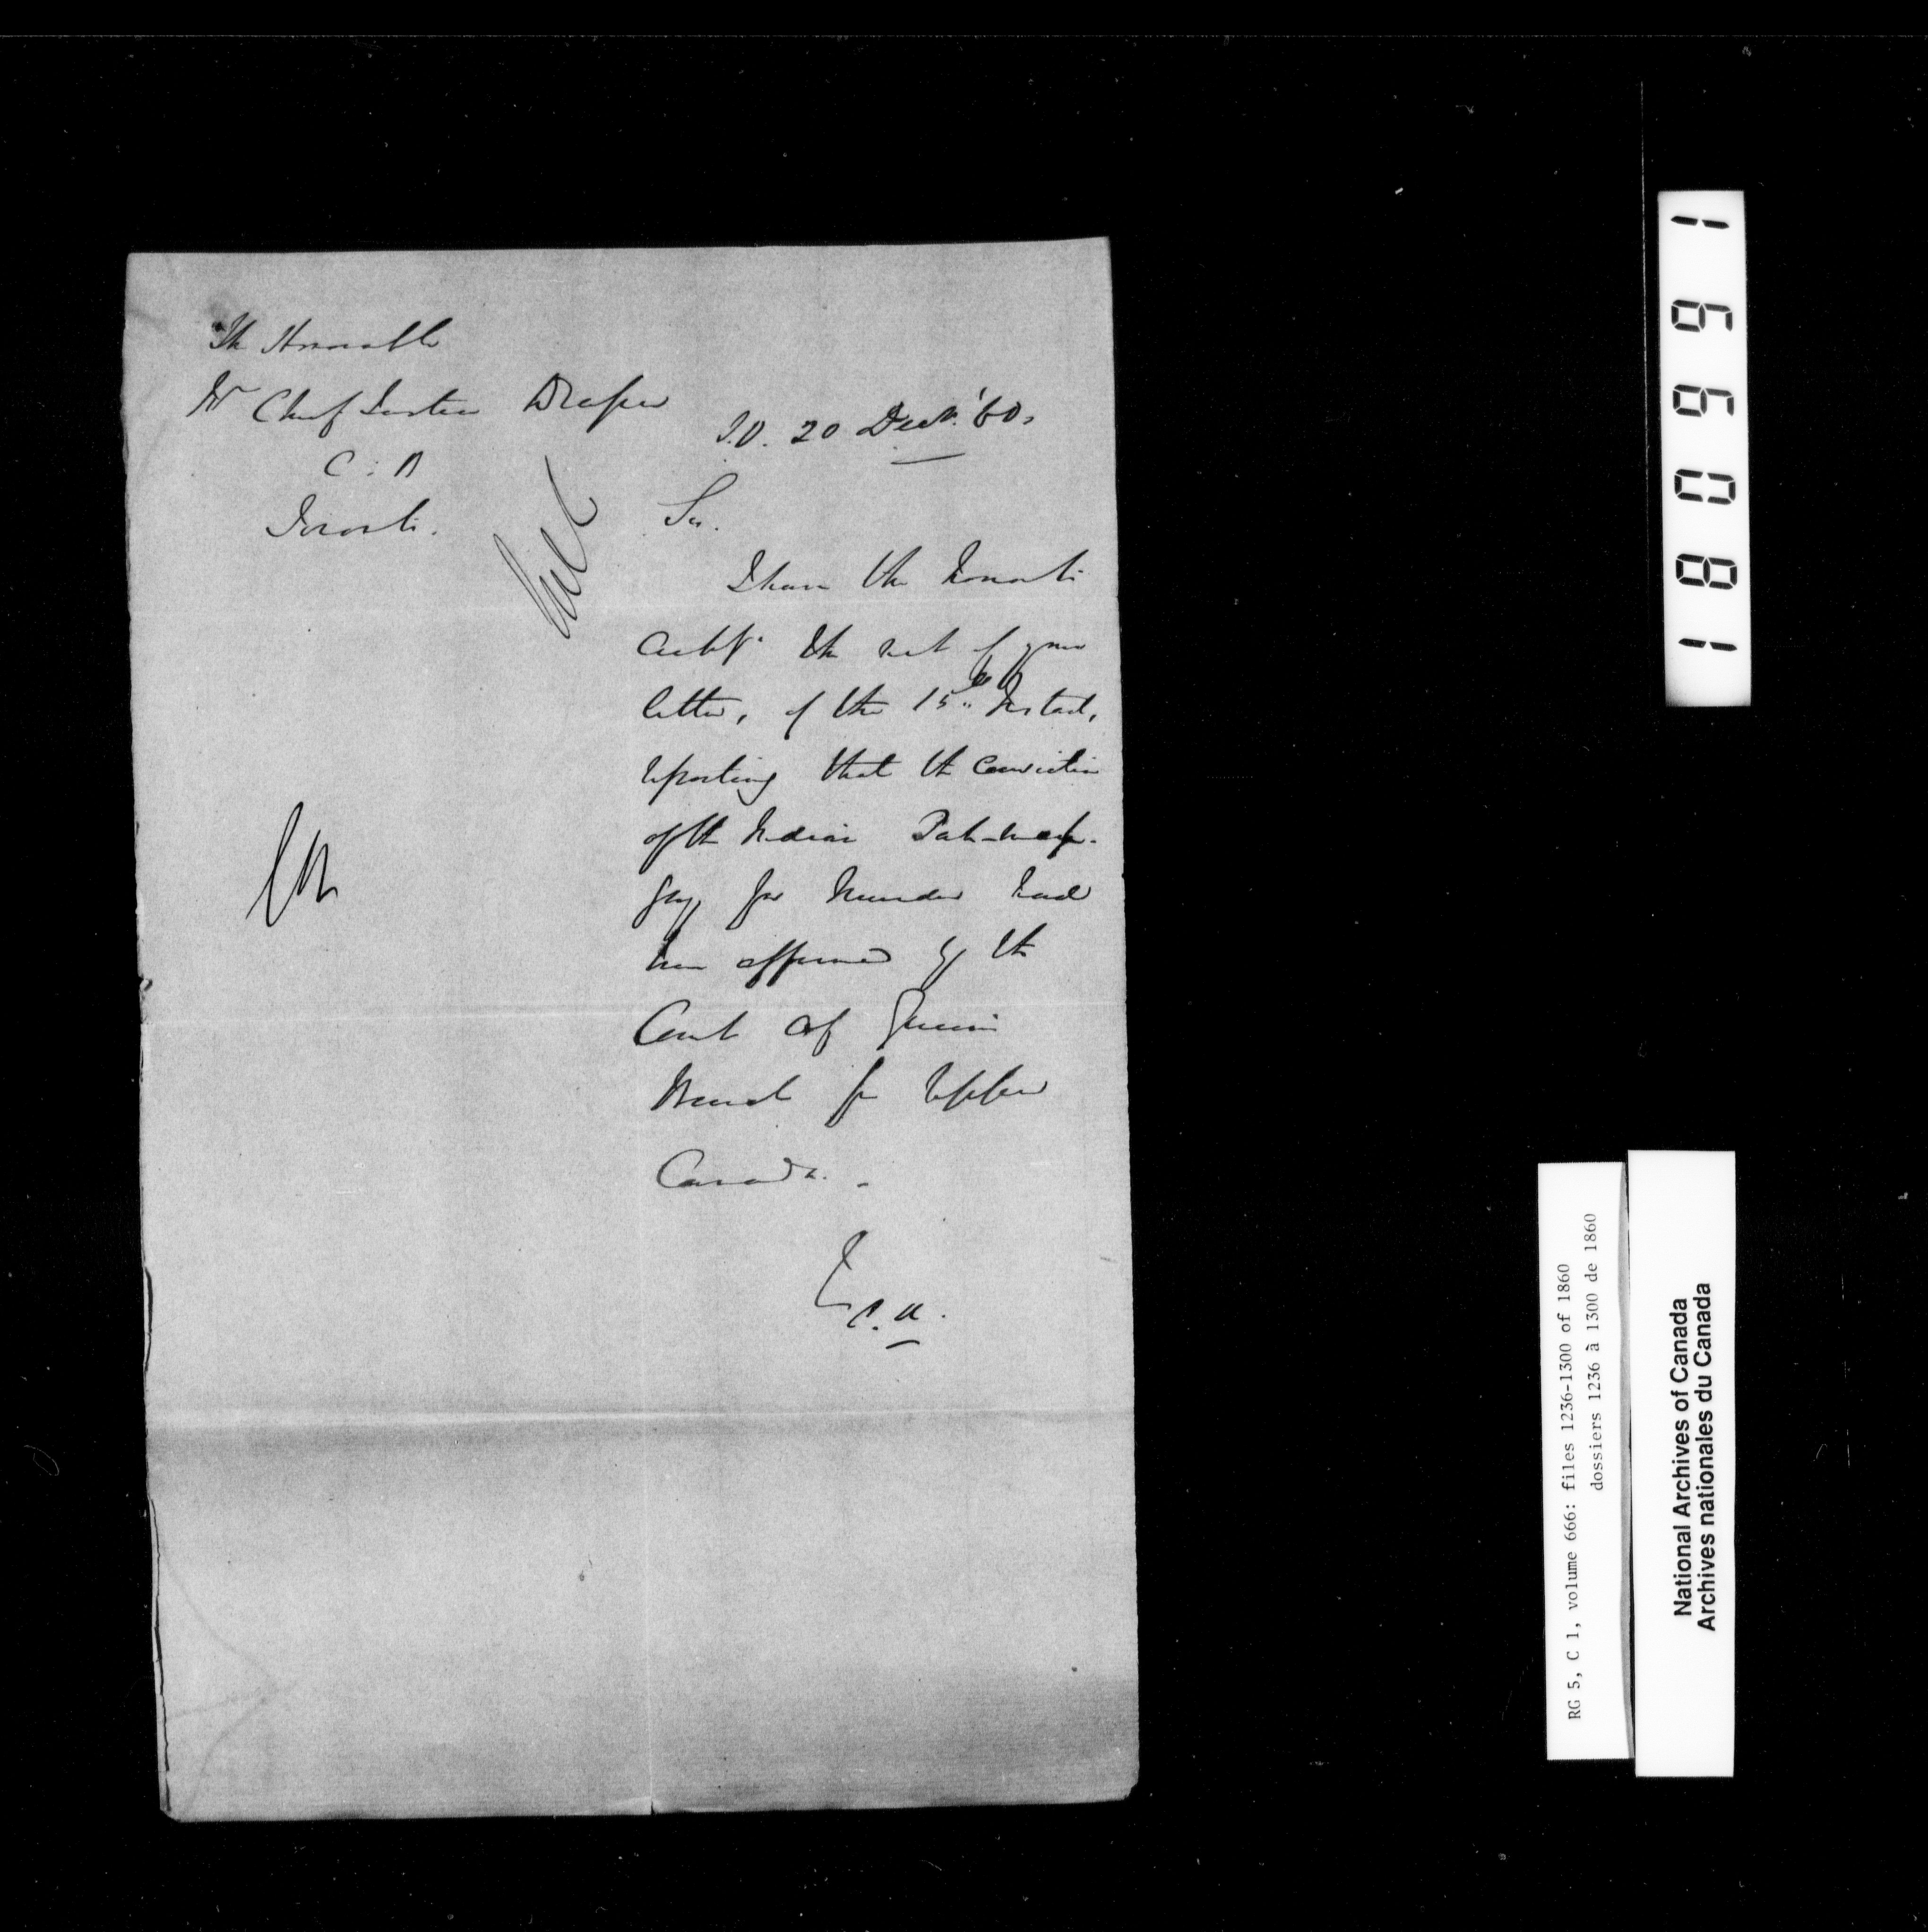 The Honorable
Mr Chief Justice Draper
C : B
Toronto.
S.O. 20 Decr. '60.
Sir.
I have the honor to
ackn. the rect of your
letter, of the 15th Instant,
reporting that the conviction
of the Indian Pah-mah-
gay for Murder had
been affirmed by the
Court of Queen's
Bench for Upper
Canada. -
C. A.
1 8 0 9 9 1
RG 5, C 1, volume 666: files 1236-1300 of 1860
dossiers 1236 à 1300 de 1860
National Archives of Canada
Archives nationales du Canada